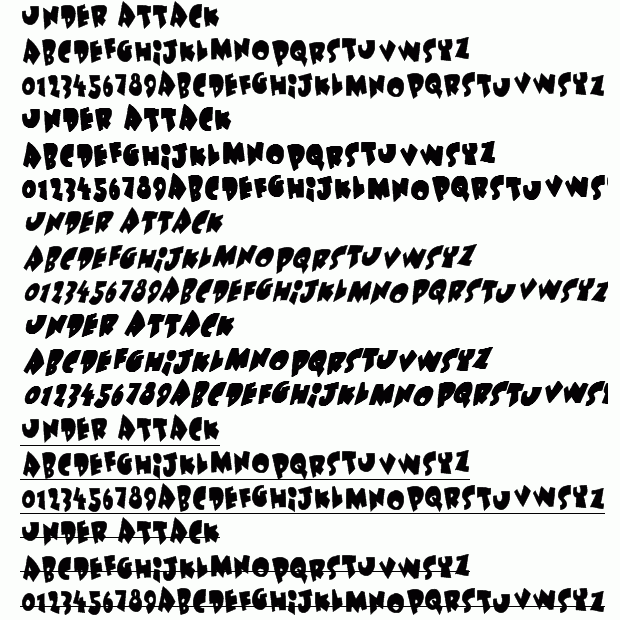 UNDER ATTACK
ABCDEFGHiJKLMNOPQRSTUVWSYZ
0123456789ABCDEFGHiJKLMNOPQRSTUVWSYZ
UNDER ATTACK
ABCDEFGHiJKLMNOPQRSTUVWSYZ
0123456789ABCDEFGHiJKLMNOPQRSTUVWSY
UNDER ATTACK
ABCDEFGHiJKLMNOPQRSTUVWSYZ
0123456789ABCDEFGHiJKLMNOPQRSTUVWSYZ
UNDER ATTACK
ABCDEFGHiJKLMNOPQRSTUVWSYZ
0123456789ABCDEFGHiJKLMNOPQRSTUVWSY
UNDER ATTACK
ABCDEFGHiJKLMNOPQRSTUVWSYZ
0123456789ABCDEFGHiJKLMNOPQRSTUVWSYZ
UNDER ATTACK
ABCDEFGHiJKLMNOPQRSTUVWSYZ
0123456789ABCDEFGHiJKLMNOPQRSTUVWSYZ